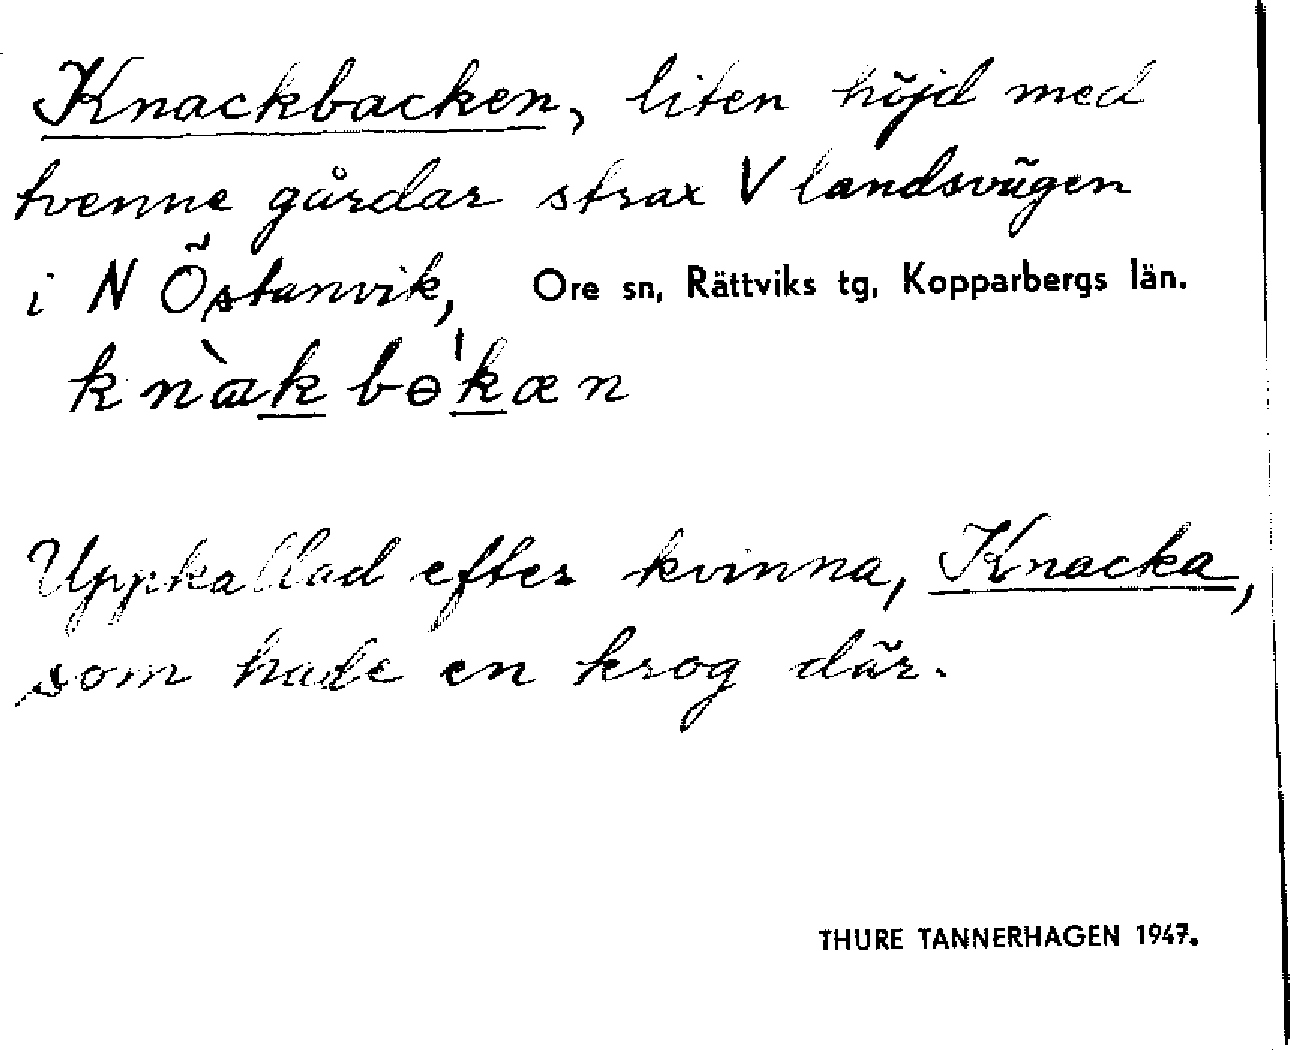 Knackbacken, liten höjd med
tvenne gårdar strax V landsvägen
i N Östanvik, Ore sn, Rättviks tg, Kopparbergs län.
knàk bɵ'kæn
Uppkallad efter kvinna, Knacka,
som hade en krog där.
THURE TANNERHAGEN 1947.